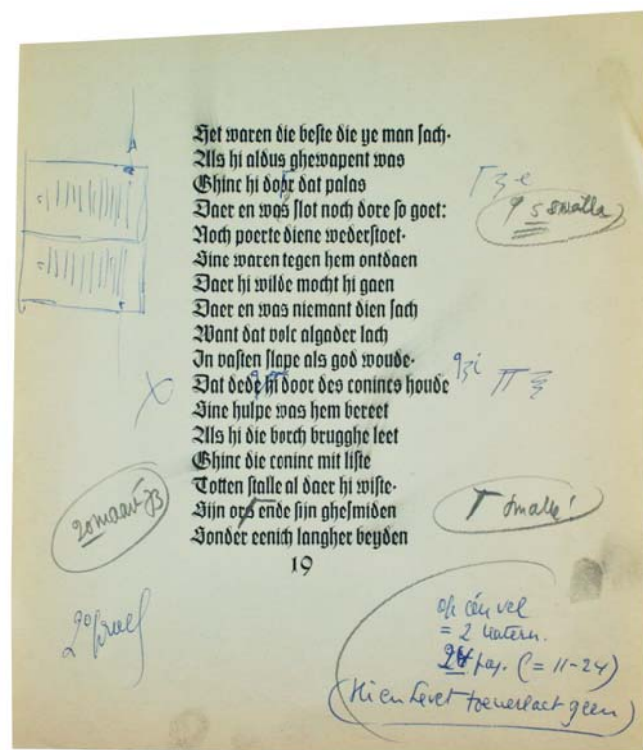 Het waren die beste die ye man sach·
Als hi aldus ghewapent was
Ghinc hi door dat palas
Daer en was slot noch dore so goet:
Noch poerte diene wederstoet·
Sine waren tegen hem ontdaen
Daer hi wilde mocht hi gaen
Daer en was niemant dien sach
Want dat volc algader lach
In vasten slape als god woude·
Dat dede hi door des conincs houde
Sine hulpe was hem bereet
Als hi die borch brugghe leet
Ghinc die coninc mit liste
Totten stalle al daer hi wiste·
Sijn ors ende sijn ghesmiden
Sonder eenich langher beyden
19
s smalle
smalle!
20 maart 73
2º proef
op één vel
= 2 katern.
24 pag. (= 11-24)
geen